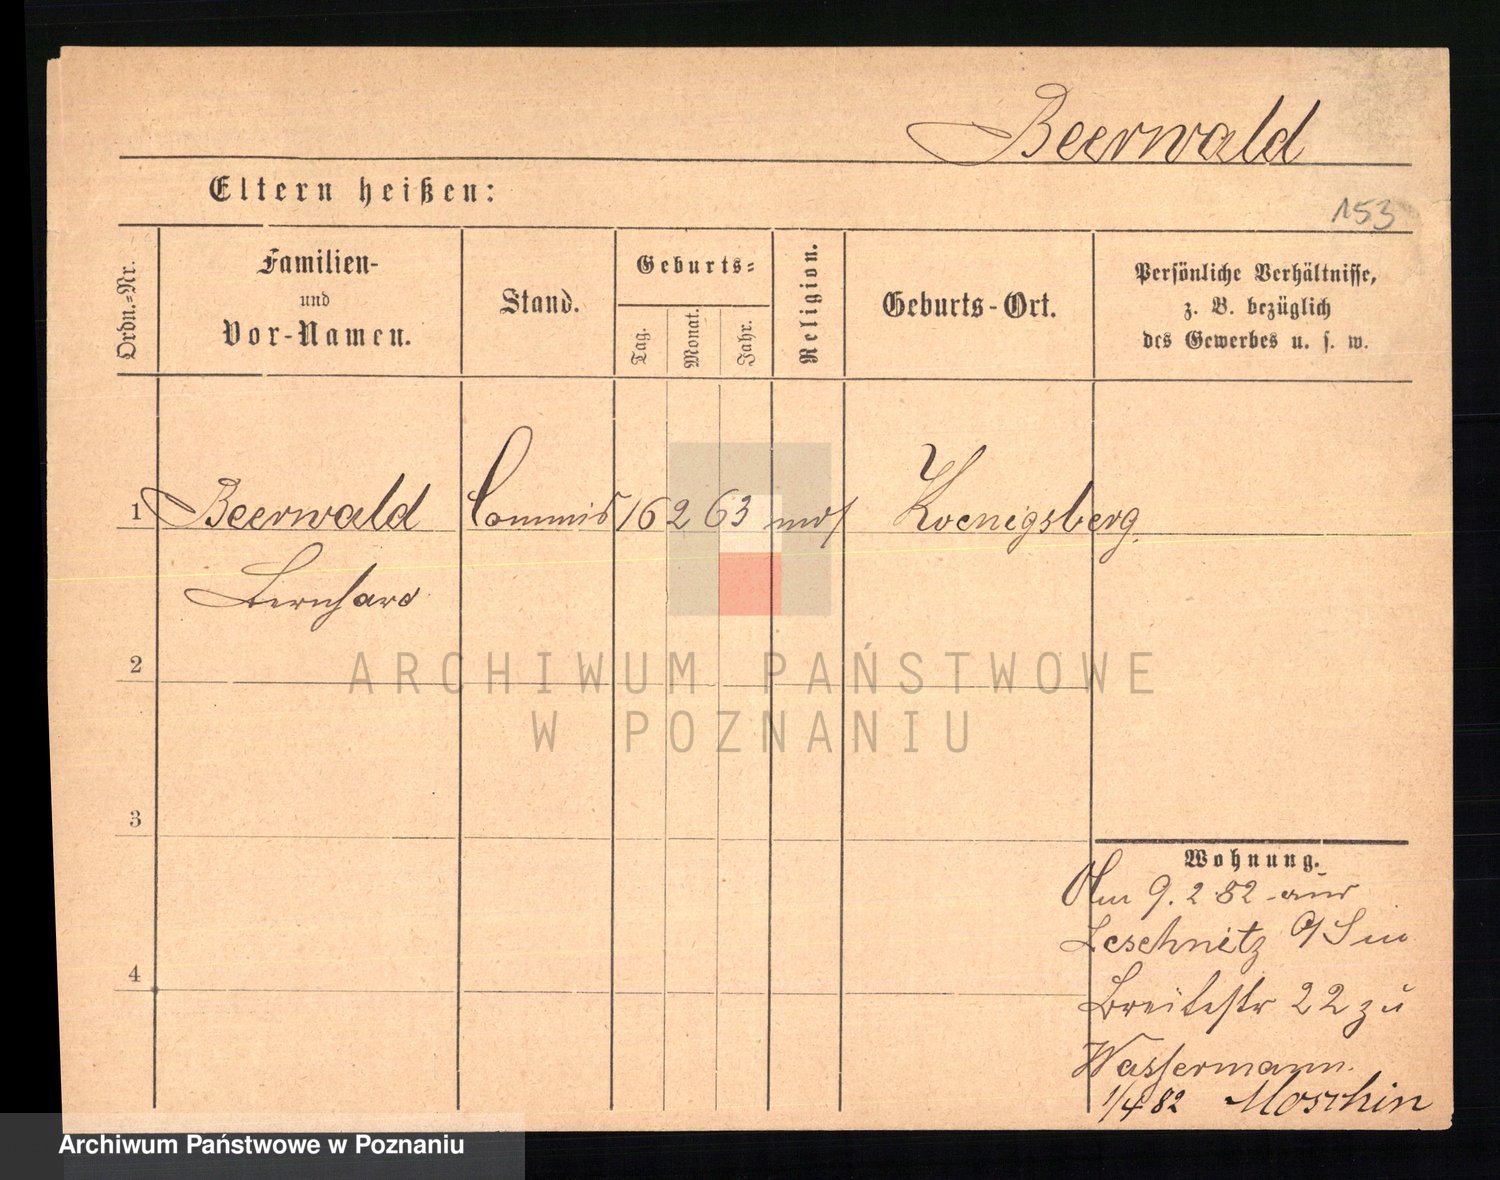 Beerwald
Eltern heißen:
153
Ordn.-Nr.
Familien-
und
Vor-Namen.
Stand.
Geburts-
Tag.
Monat.
Jahr.
Religion.
Geburts-Ort.
Persönliche Verhältnisse,
z. B. bezüglich
des Gewerbes u. s. w.
1 Beerwald Commis 16 2 63 mos Koenigsberg.
Bernhard
2
3
4
Wohnung.
Am 9. 2 82 aus
Leschnitz O/S in
Breitestr 22 zu
Wassermann.
1/4 82 Moschin
ARCHIWUM PAŃSTWOWE
W POZNANIU
Archiwum Państwowe w Poznaniu